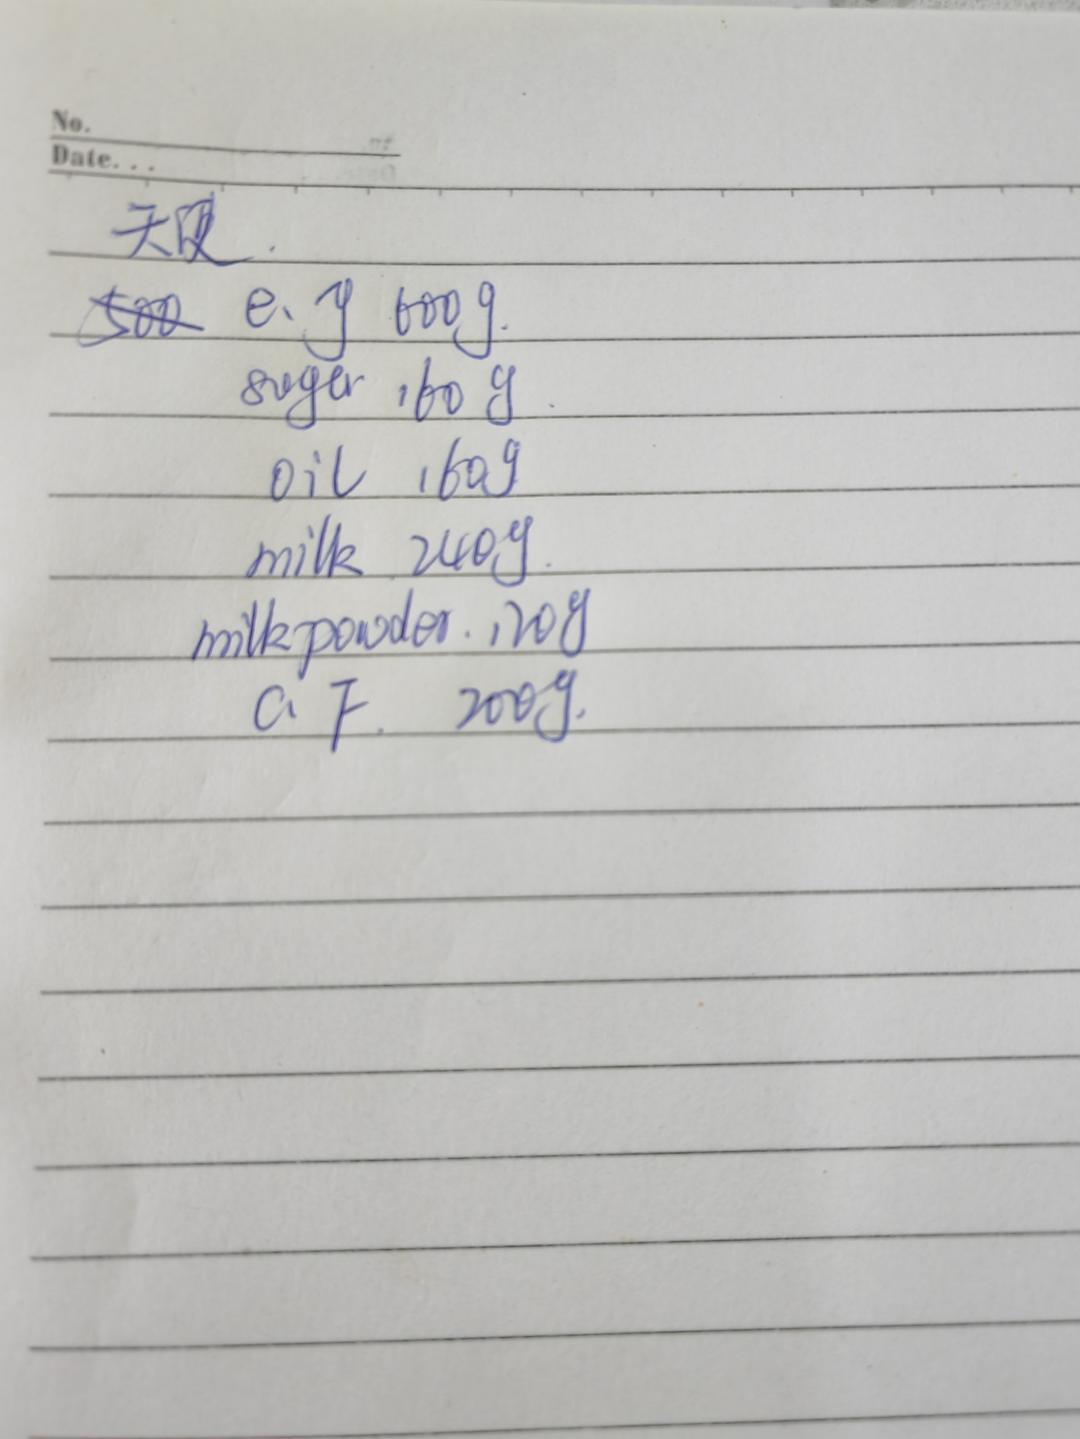 No.
Date...
天使.
500 e. y 600g.
suger 160g.
oil 160g
milk 240g.
milk powder. 120g
C. F. 200g.